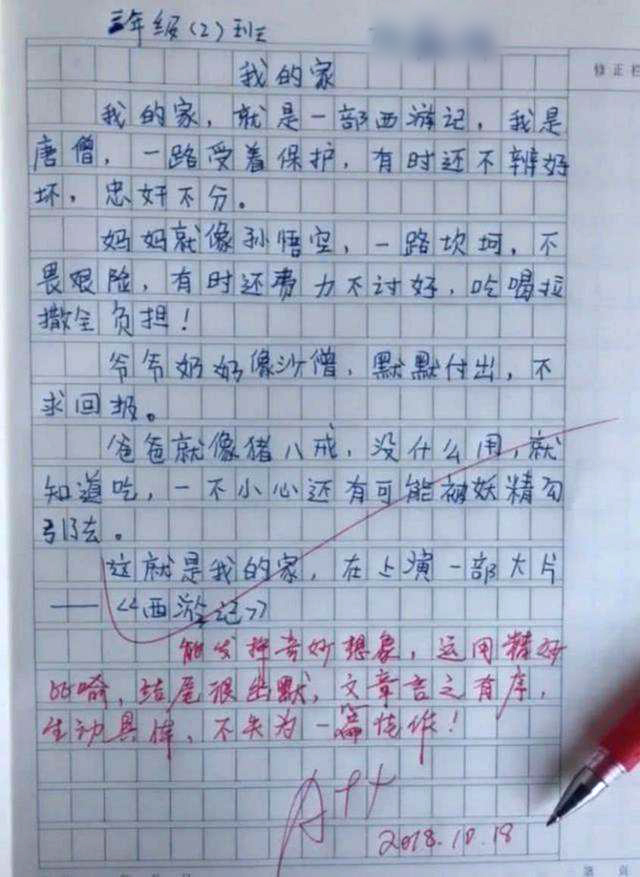 三年级(2)班
修正栏
我的家
我的家，就是一部西游记，我是
唐僧，一路受着保护，有时还不辨好
坏，忠奸不分。
妈妈就像孙悟空，一路坎坷，不
畏艰险，有时还费力不讨好，吃喝拉
撒全负担！
爷爷奶奶像沙僧，默默付出，不
求回报。
爸爸就像猪八戒，没什么用，就
知道吃，一不小心还有可能被妖精勾
引去。
这就是我的家，在上演一部大片
——《西游记》
能发挥奇妙想象，运用精妙
比喻，结尾很幽默，文章言之有序，
生动具体，不失为一篇佳作！
A++
2018.10.18
第 页